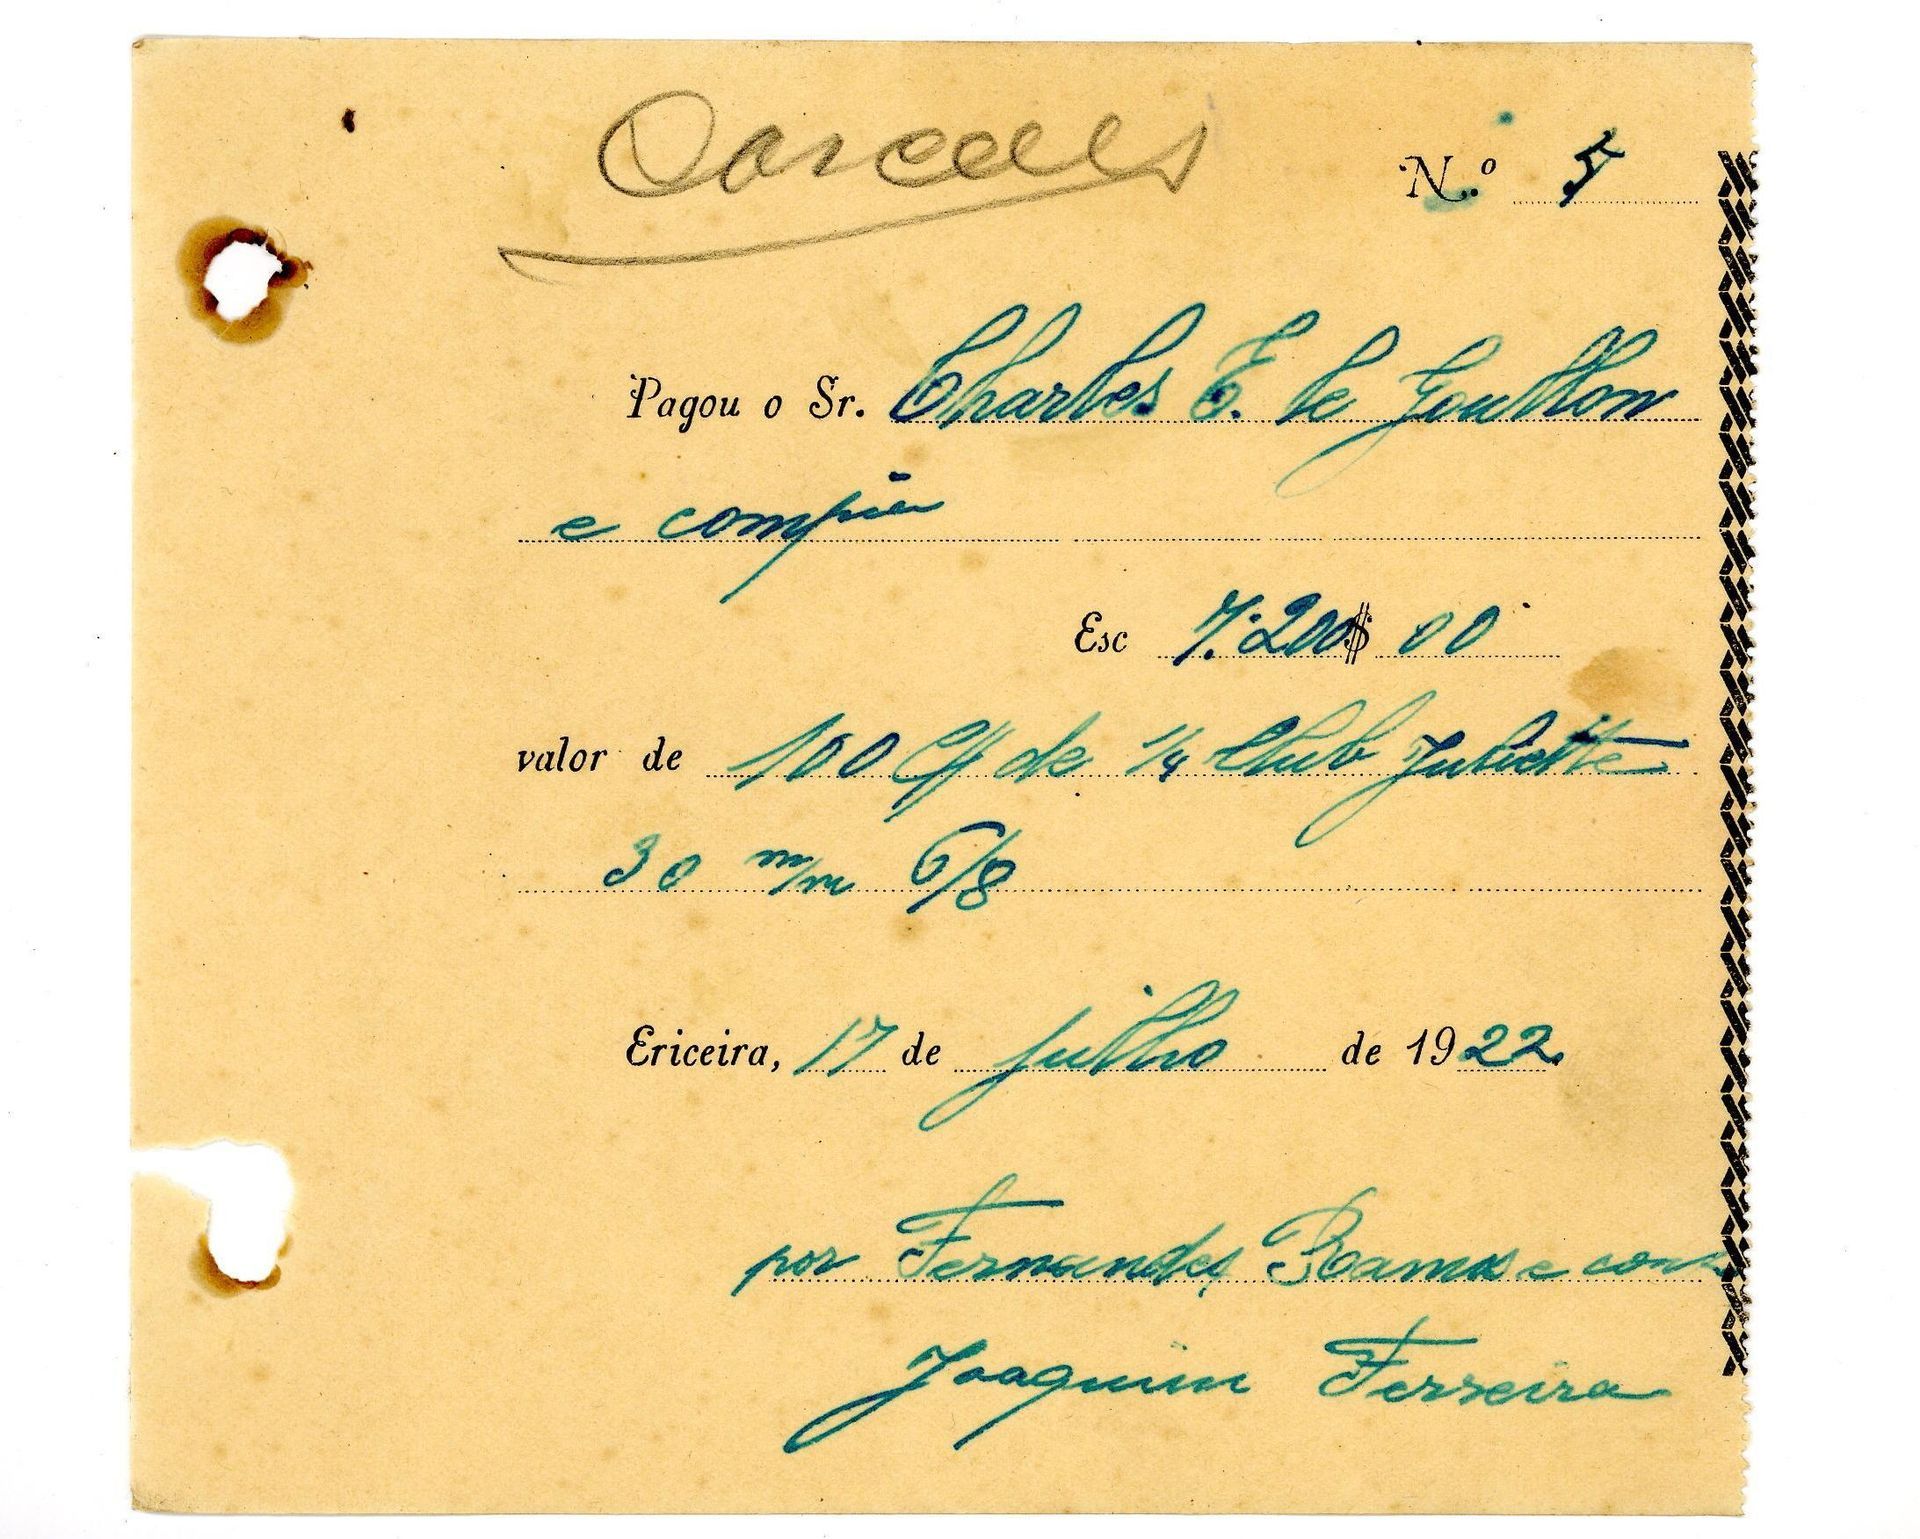 N.º 5
Pagou o Sr. Charles E. le Goullon
e compia
Esc 7.200$00
valor de 100 C/ de 1/4 Club Juliette
30 m/m 6/8
Ericeira, 17 de julho de 1922.
por Fernandes Ramos e
Joaquim Ferreira